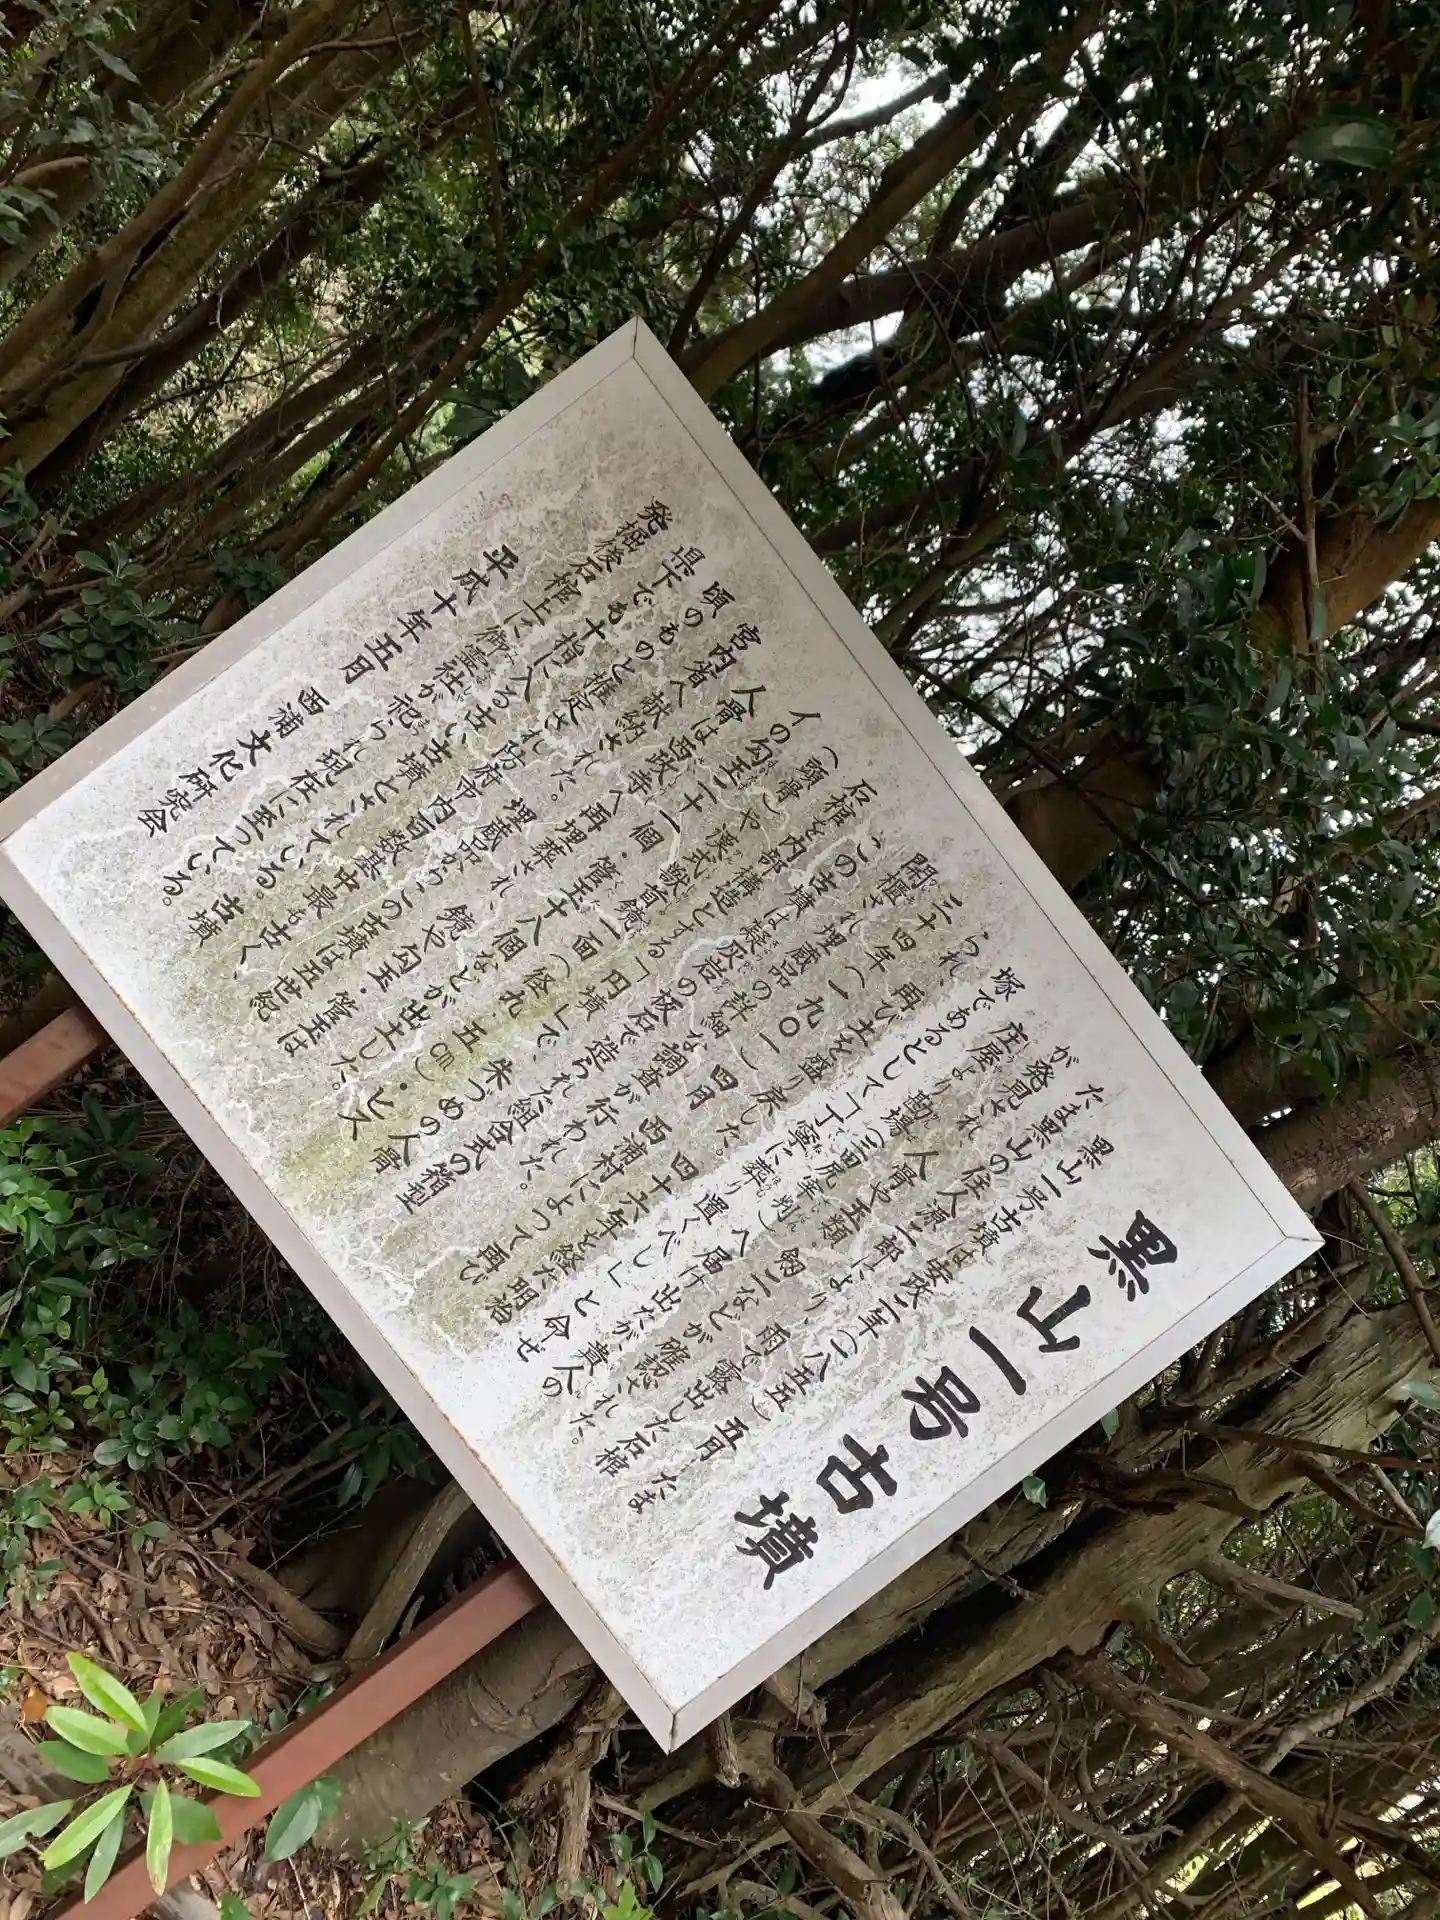 黒山一号古墳
黒山一号古墳は安政二年(一八五五)五月
たま黒山の住人源二郎により、雨で露出した石棺
が発見され人骨や玉類、劔二などが確認された。
庄屋より勘場(三田尻宰判)へ届け出たが、貴人の
塚であるとして「丁寧に葬り置くべし」と命ぜ
られ、再び土を盛り戻した。四十六年を経た明治
三十四年(一九〇一)四月西浦村によって再び
開櫃され埋蔵品の詳細な調査が行われた。
この古墳は凝灰岩の板石で造られた組合式の箱型
石棺を内部構造とする「円墳」で、朱づめの人骨
(頭骨)や漢式獣首鏡一面(径九・五㎝)・ヒス
イの勾玉二十一個・管玉十八個などが出土した。
人骨は西政寺へ再埋葬され、鏡や勾玉・管玉は
宮内省へ献納された。埋蔵品からこの古墳は五世紀
頃のものと推定され防府市内百数基の古墳中最も古く、
県下でも十指に入る古い古墳とされている。
発掘後石棺上に御霊社が祀られ現在に至っている。
平成十年五月
西浦文化研究会